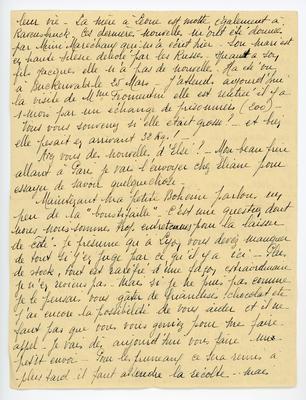 leur vie - La mère à Leone est morte également à
Ravensbruck. Ces dernières nouvelles m'ont été données
par Mme Maréchay qui m'a écrit hier. Son mari est
en haute Silésie délivré par les Russes. Quant à son
fils Jacques elle n'a pas de nouvelle. Il a été vu
à Buckenvalde 25 Mars - J'attends aujourd'hui
la visite de Mme elle est rentrée il y a
1 mois par un échange de prisonniers (200) -
Vous vous souvenez si elle était grosse! - et bien
elle pesait en arrivant 32 Kg! -
Avez vous des nouvelles d'Elsie! - Mon beau frère
allant à Paris je vais l'envoyer chez Eliane pour
essayer de savoir quelque chose -
Maintenant ma petite Boheme parlons un
peu de la "boustifaille". C'est une question dont
nous nous sommes trop entretenues pour la laisser
de côté. Je présume qu'à Lyon vous devez manquer
de tout si j'en juge par ce qu'il y a ici - Plus
de stock, tout est raréfié d'une façon extraordinaire
je n'en reviens pas. Mais si je ne puis pas comme
je le pensais vous gâter de friandises, chocolat etc
j'ai encore la possibilité de vous aider et il ne
faut pas que vous vous gêniez pour me faire
appel. Je vais dès aujourd'hui vous faire un
petit envoi - Pour les pruneaux ce sera remis à
plus tard il faut attendre la récolte - mais